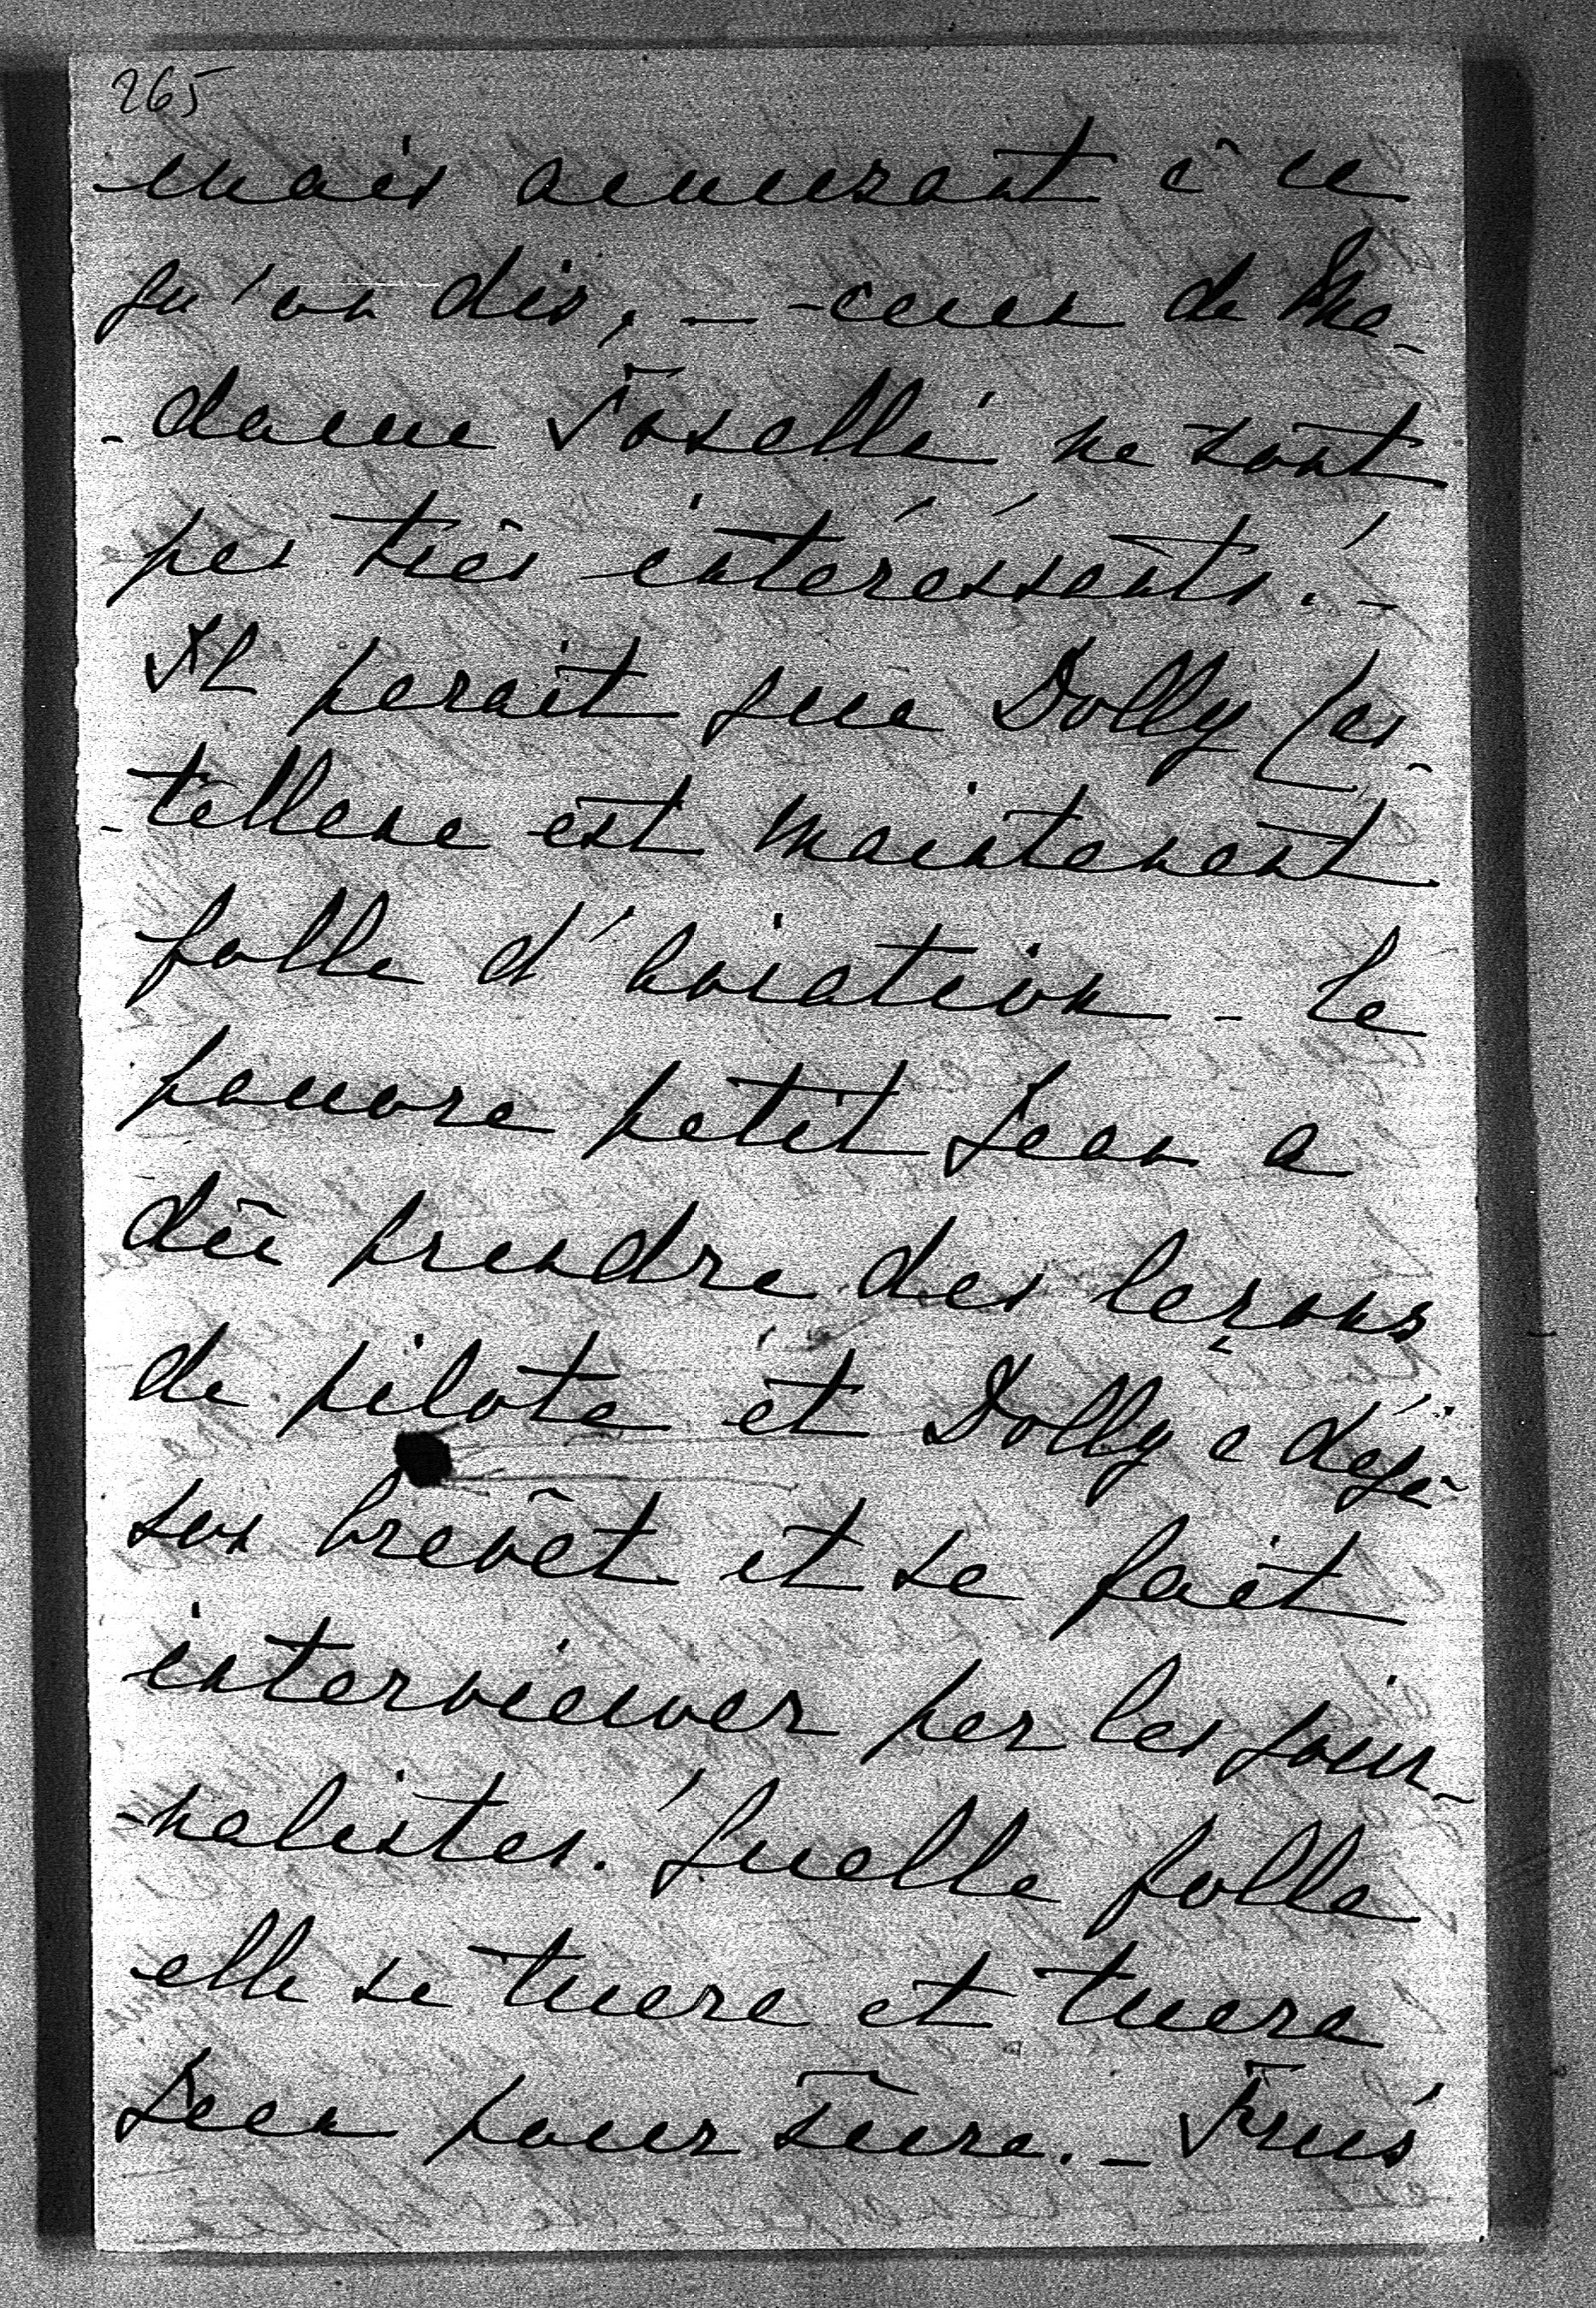 265
mais amusant à ce
qu'on dis, — ceux de Ma-
-dame Toselli ne sont
pas très intéressants! -
Il parait que Dolly Cas-
-tellane est maintenant
folle d'aviation - Le
pauvre petit Jean a
dû prendre des leçons
de pilote et Dolly a déjà
son brevêt et se fait
interviewer par les jour-
-nalistes! Quelle folle
elle se tuera et tuera
Jean pour sûre. —